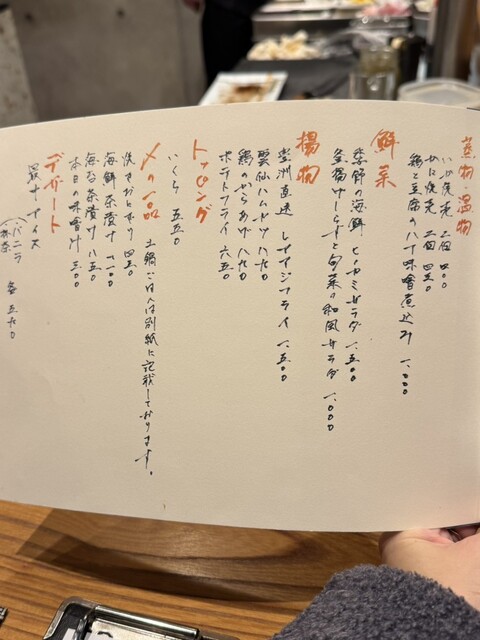 蒸物・温物
いか焼売 二個 四〇〇
かに焼売 二個 四五〇
鶏と豆腐の八丁味噌煮込み 一、〇〇〇
鮮菜
熊野の海鮮 ヒノカミサラダ 一、五〇〇
釜揚げしらすと旬菜の和風サラダ 一、〇〇〇
揚物
豊洲直送 レアアジフライ 一、五〇〇
雲仙ハムカツ 八九〇
鶏のからあげ 八九〇
ポテトフライ 六五〇
トッピング
いくら 五五〇
〆の一品 土鍋ごはんは別紙に記載しております。
焼きおにぎり 四五〇
海鮮茶漬け 一、一〇〇
海苔茶漬け 八五〇
本日の味噌汁 三〇〇
デザート
最中アイス
(バニラ
抹茶
各 五九〇